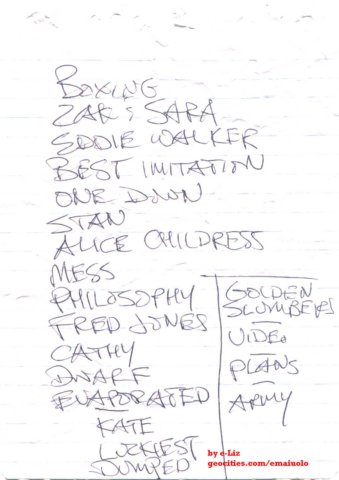 BOXING
ZAK & SARA
EDDIE WALKER
BEST IMITATION
ONE DOWN
STAN
ALICE CHILDRESS
MESS
PHILOSOPHY
FRED JONES
CATHY
DWARF
EVAPORATED
KATE
LUCKIEST
DUMPED
GOLDEN
SLUMBERS
VIDEO
PLANS
ARMY
by e-Liz
geocities.com/emaiuolo